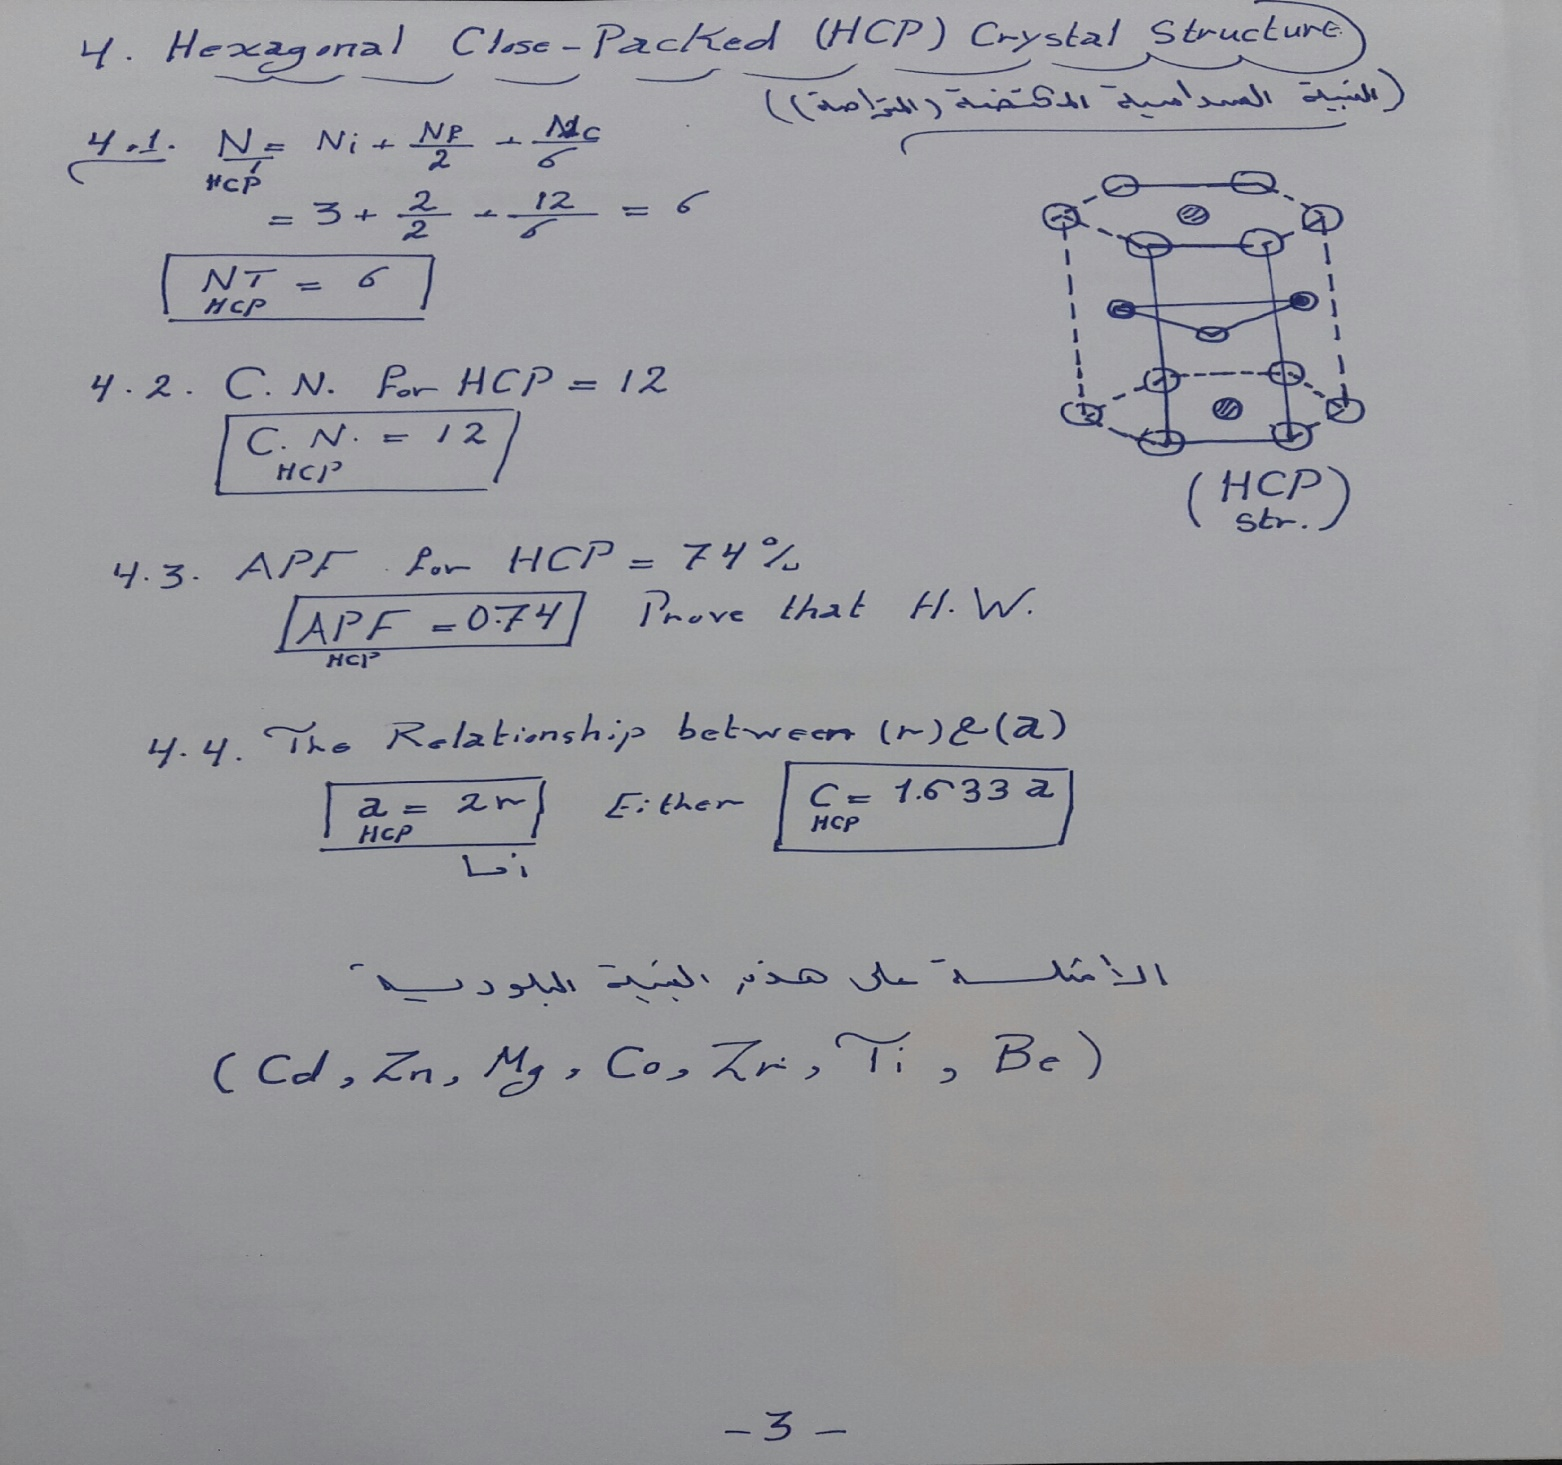 4. Hexagonal Close-Packed (HCP) Crystal Structure
(البنية السداسية المكتضة (المتراصة))
4.1. N HCP = Ni + NF/2 + Nc/6
= 3 + 2/2 + 12/6 = 6
NT HCP = 6
4.2. C.N. for HCP = 12
C.N. HCP = 12
(HCP str.)
4.3. APF for HCP = 74%
APF HCP = 0.74 Prove that H.W.
4.4. The Relationship between (r) & (a)
a HCP = 2r Either C HCP = 1.633 a
أما
الأمثلة على هذه البنية البلورية
(Cd, Zn, Mg, Co, Zr, Ti, Be)
-3-